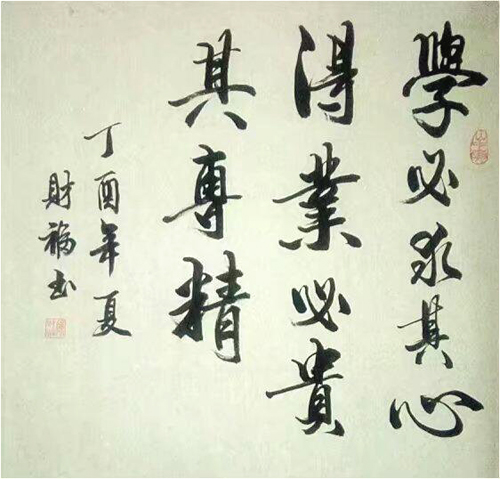 學必求其心
得業必貴
其專精
丁酉年夏
財福书